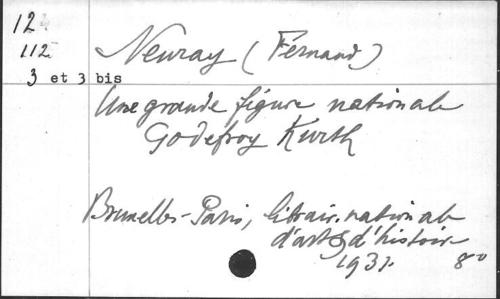 12
112
3 et 3 bis
Neuray (Fernand)
Une grande figure nationale
Godefroy Kurth
Bruxelles-Paris, librair. nationale
d'art & d'histoire
1931. 8°